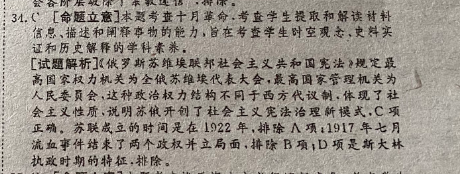 34.C [命题立意]本题考查十月革命,考查学生提取和解读材料
信息、描述和阐释事物的能力,旨在考查学生时空观念、史料实
证和历史解释的学科素养。
[试题解析]《俄罗斯苏维埃联邦社会主义共和国宪法》规定最
高国家权力机关为全俄苏维埃代表大会,最高国家管理机关为
人民委员会,这种政治权力结构不同于西方代议制,体现了社
会主义性质,说明苏俄开创了社会主义宪法治理新模式,C项
正确。苏联成立的时间是在1922年,排除A项;1917年七月
流血事件结束了两个政权并立局面,排除B项;D项是斯大林
执政时期的特征,排除。